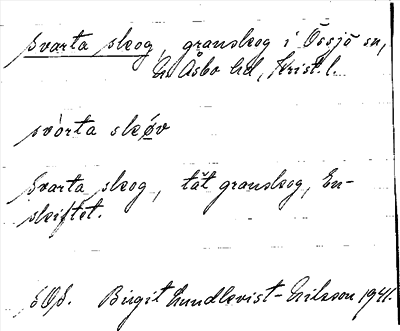 Svarta skog, granskog i Össjö sn,
N. Åsbo hd, Krist. l.
svòrta skǿv
Svarta skog, tät granskog, En-
skiftet.
Birgit Lundkvist-Nilsson 1941.